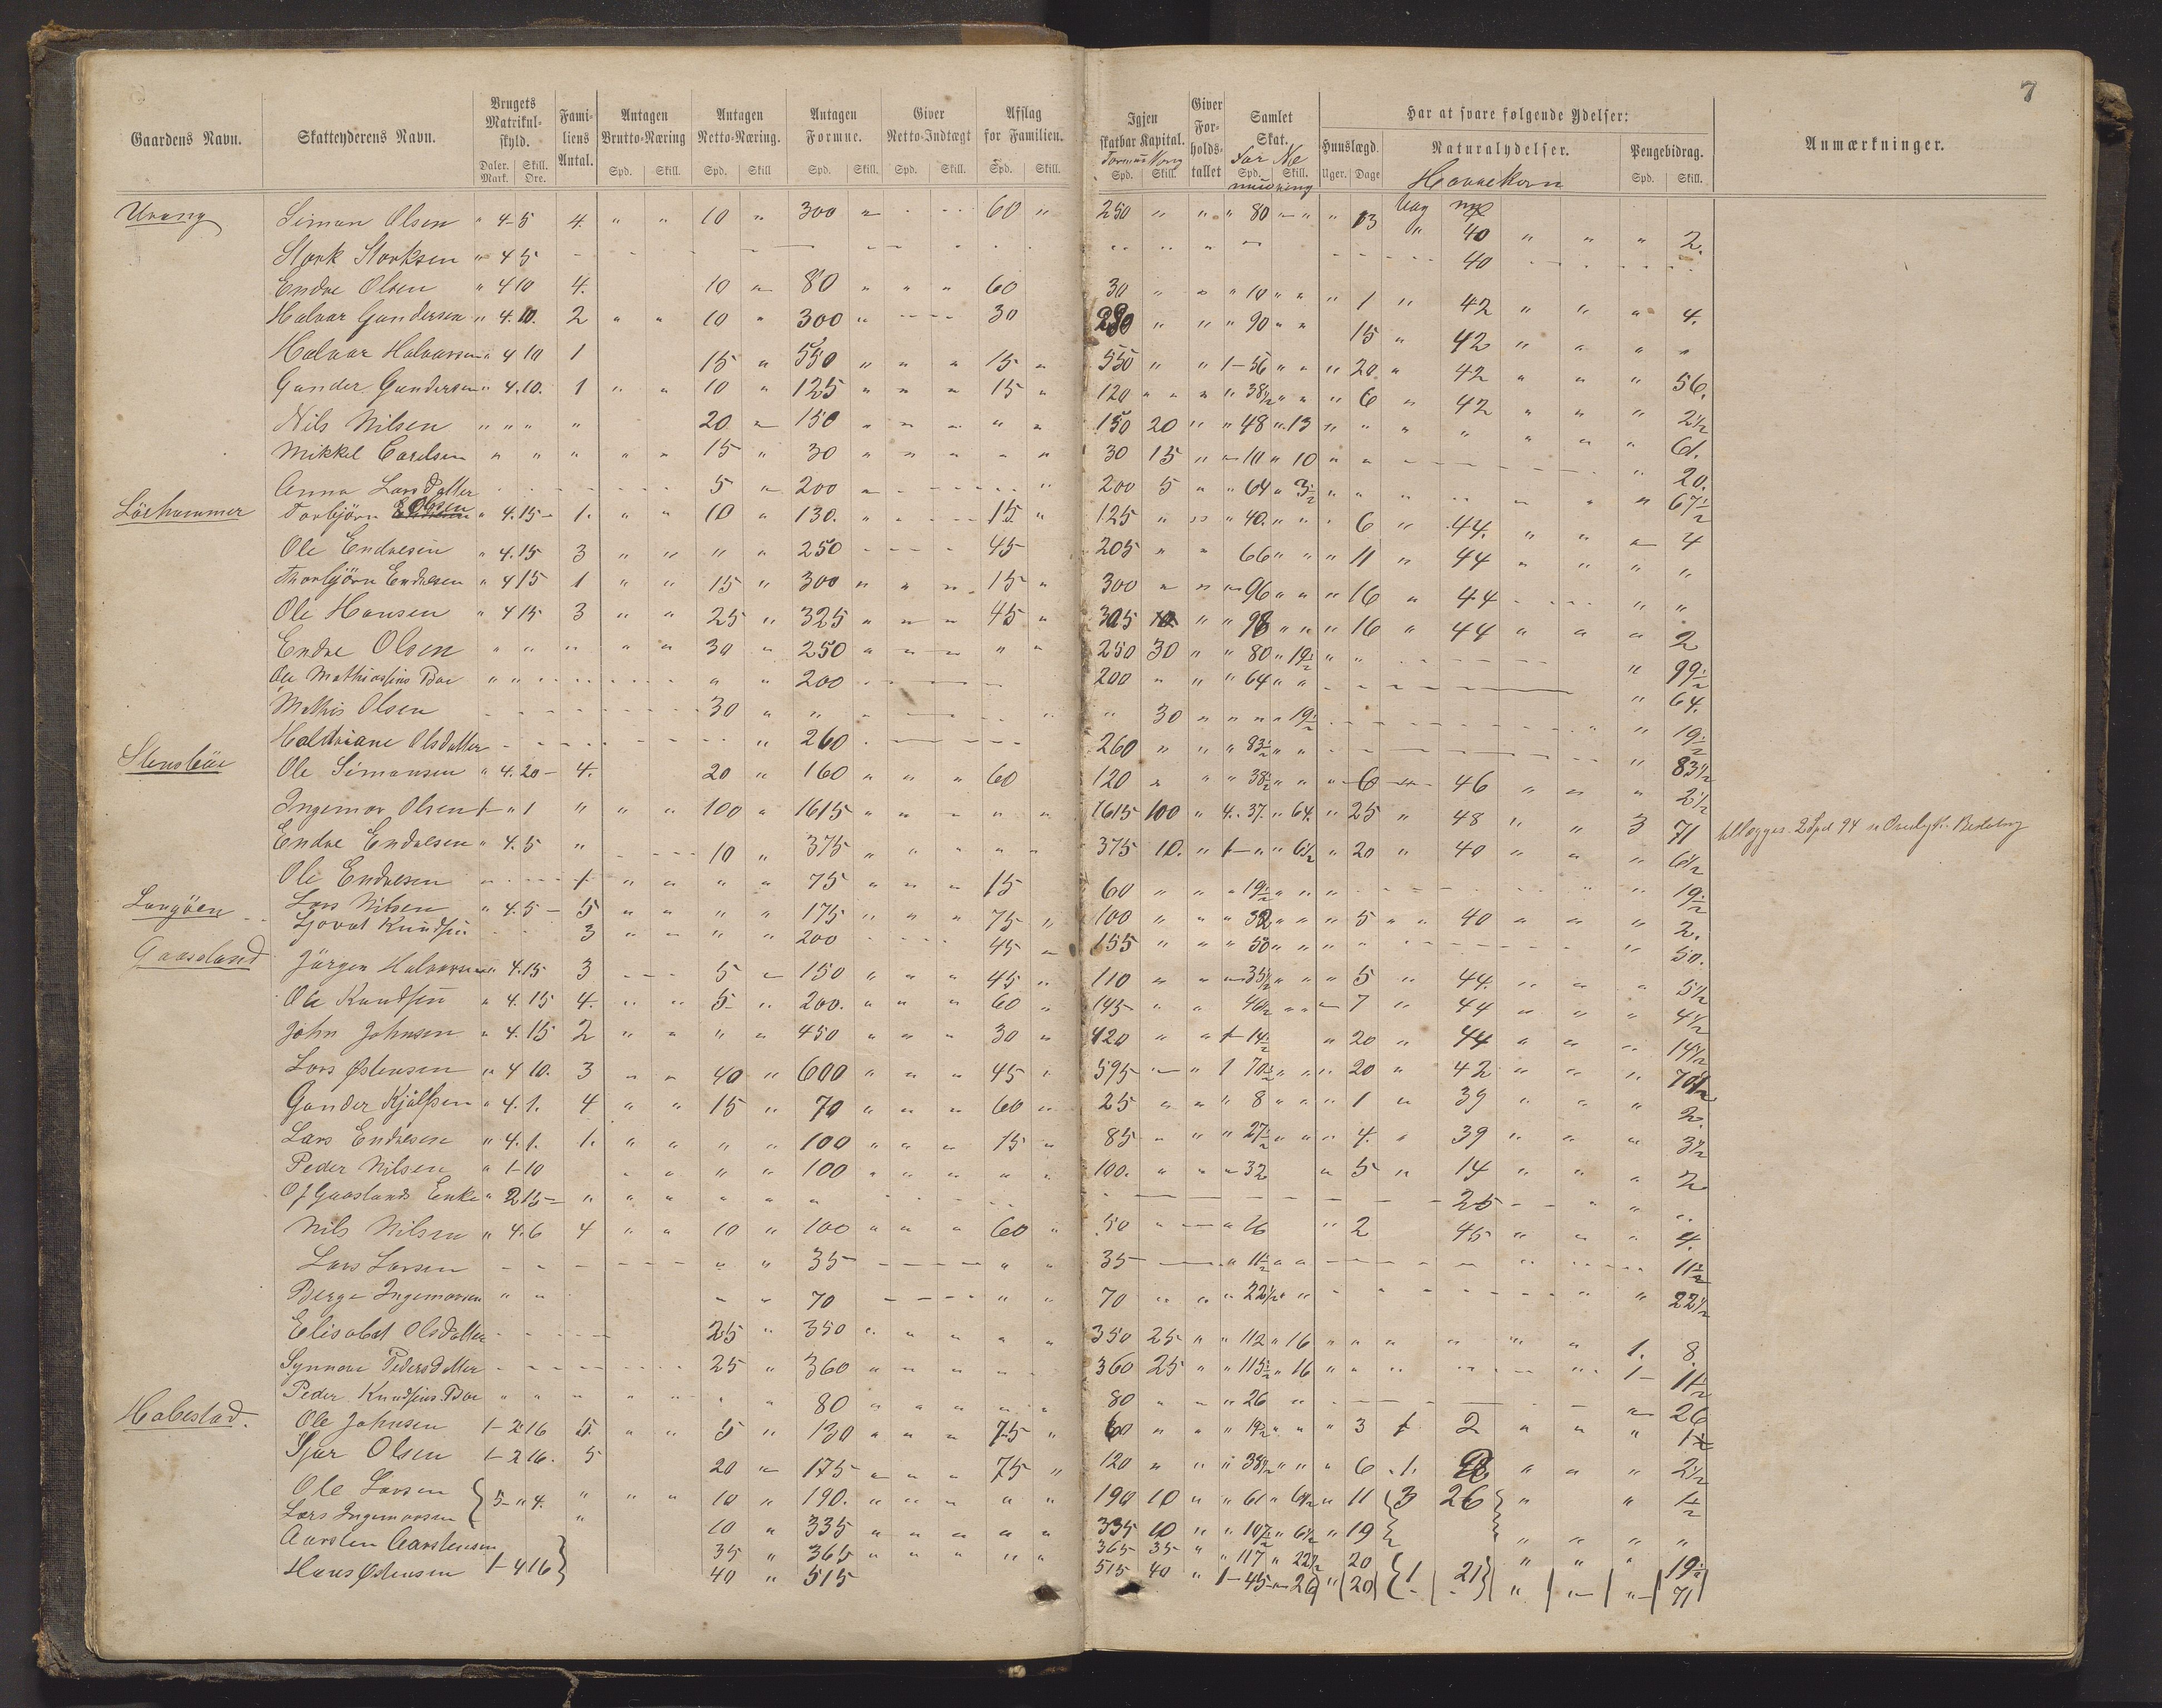 7
Gaardens Navn. Skatteyderens Navn. Brugets Matrikulskyld. Familiens Antal. Antagen Brutto-Næring Antagen Netto-Næring. Antagen Formue. Giver Netto-Indtægt Afslag for Familien. Igjen skatbar Kapital. Giver Forholdstallet Samlet Skat. Har at svare følgende Ydelser: Anmærkninger.
Hunslægd. Naturalydelser. Pengebidrag.
Daler. Skill. Mark. Øre. Spd. Skill. Spd. Skill Spd. Skill. Spd. Skill. Spd. Skill. Spd. Skill. Spd. Skill. Uger. Dage Havrekorn Spd. Skill.
Urang Simon Olsen " 4-5 4. " " 10 " 300 60 " 250 " " " 80 " 13 " 40 " " " 2.
Stork Storksen " 4 5 40
Endre Olsen " 4 10 4. 10 80 " " " 60 30 " " " 10 " " " 1 " 42 " " " 4.
Halvar Gundersen " 4.10. 2 " " 10 " 300 " 30 290 " " " 90 " " 15 " 42 " " " "
Halvor Halvorsen " 4 10 1 15 " 550 " " " 15 " 550 " " 1-56 " " " 20 " 42 " " " 56.
Gunder Gundersen " 4.10. 1 " " 10 " 125 " " " 15 " 120 " " " " 38½ " " " 6 " 42 " " " 2½
Nils Nilsen " " " " 20 " 150 " " " " " 150 20 " " 48 " 13 " " " " " " " 61.
Mikkel Carelsen " " " " " 15 " 30 " " " " " 30 15 " " 10 " 10 " " " 20.
Anna Larsdatter 5 " 200 " 200 5 " " 64 " 3½ " " " " 67½
Löchammer Torbjörn Olsen " 4.15 1. " " 10 " 130. " 15 " 125 " " " 40. " " " 6 " 44. " " " 4
Ole Endresen " 4.15 3 " " " " 250 45 205 " " 66 " " " 11 " 44 " " " "
Thorbjörn Endresen " 4 15 1 " " 15 " 300 " " " 15 " 300 " " " 96 " " " 16 " 44 " "
Ole Hansen " 4 15 3 " " 25 " 325 " " " 45 " 305 " " 98 " " " 16 " 44 " " " 2
Endre Olsen " " " " " 30 " 250 " " " " " 250 30 " " 80 " 19½ " " " 99½
Ole Mathiassens Boe " " " " 200 200 " " " 64 " " " 64.
Mathis Olsen 30 " " " " 30 " " " " 19½ " " 19½
Olsdatter " 260 260 " " " 83½ " " " 83½
Stensbäe Ole Simonsen " 4.20 4. 20 " 160 " " " 60 120 " " " 38½ " " " 6 " 46 " " " 2½
Ingemar Olsen 1 " 1 " " " 100 " 1615 " " " " " 1615 100 " 4. 37. " 64. " 25 " 48 " " 3 71 tillægges 2 Spd 94
Endre Endresen " 4.5 " 10 " 375 " " " " " 375 10. " 1 " " 6½ " 20 " 40 " " " 6½
Ole Endresen " 1 " " " " 75 " " " 15 60 " " " 19½ " " " " " 19½
Langöen Lars Nilsen " 4.5 5 " " " " 175 " " " 75 " 100 " " " 32 " " " 5 " " 40 " " " 2.
Knudsen 3 " " " " 200 45 " 155 " " " 50 " " " " " 50.
Gaaseland Jörgen Halvorsen " 4.15 3 5 " 150 " " " 45 " 110 " " " 35½ " " " 5 " 44. " " " 5½
Ole Knudsen " 4.15 4. " " 5 " 200. " " " 60 " 145 " " 46½ " " 7 " 44 " " " 4½
John Johnsen " 4.15 2 " " " " 450 " " " 30 " 420 " " 1-14½ " 20 " 44 " " " 14½
Lars Østensen " 4 10. 3 " " 40 " 600 " " " 45 " 595 " " 1 70½ " " " 20 " 42 " " " 70½
Gunder Kjölsen " 4.1. 4 " " 15 " 70 " " " 60 " 25 " " " 8 " " " 1 " 39 " " " 2.
Lars Endresen " 4.1. 1. " " " " 100 " " " 15 " 85 " " " 27½ " " " 4. " 39 " " " 3½
Peder Nilsen " 1-10 " " " " 100 " " " " " 100. " " " 32 " 5 " 14 " " " 2
O J Gaaslands Enke " 2 15 " " " " " " 25 " "
Nils Nilsen " 4.6 4 " " 10 " 100 " " " 60 " 50 " " 16 " 2 45 " " " 4.
Lars Larsen " " 35 " " 35 " 11½ " " " 11½
Berge Ingemarsen " " " " 70 " " 70 " " " 22½ " " " " 22½
Elisabet Olsdatter 25 " 350 " " " " " 350 25 " " 112 " 16 " " " " " " 1. 8.
Synnove Pedersdatter 25 " 360 " " " " 360 25 " " 115½ " 16 " " " 1 11½
Peder Knudsens Boe " " " " " " " 80 " " " " " 80 " " " 26 " " 26
Holestad. Ole Johnsen 1-2 16 5. " " 5 " 130 " " " 75 " 60 " " " 19½ " " " 3 1 2 " " "
Olsen 1-2 16. 5 20 " 175 " " " 75 " 120 " " " 38½ " " " 6 " 1. " " " 2½
Ole Larsen 5 " 4. " " " 10 " 190. " " " " " 190 10 " " 61 " 6½ " 11 3 26 " " 1½
Lars Ingemarsen " 10 " 335 " " " " " 335 10 " " 107½ " 6½ " 19 " " " "
Aarsten Aarstensen 35 " 365 " " " " " 365 35 " " 117 " 22½ 20 " " " 19½
Hans Østensen 1-4 16 40 " 515 515 40 " 1-45 26 " 20 1 21 " " " 71